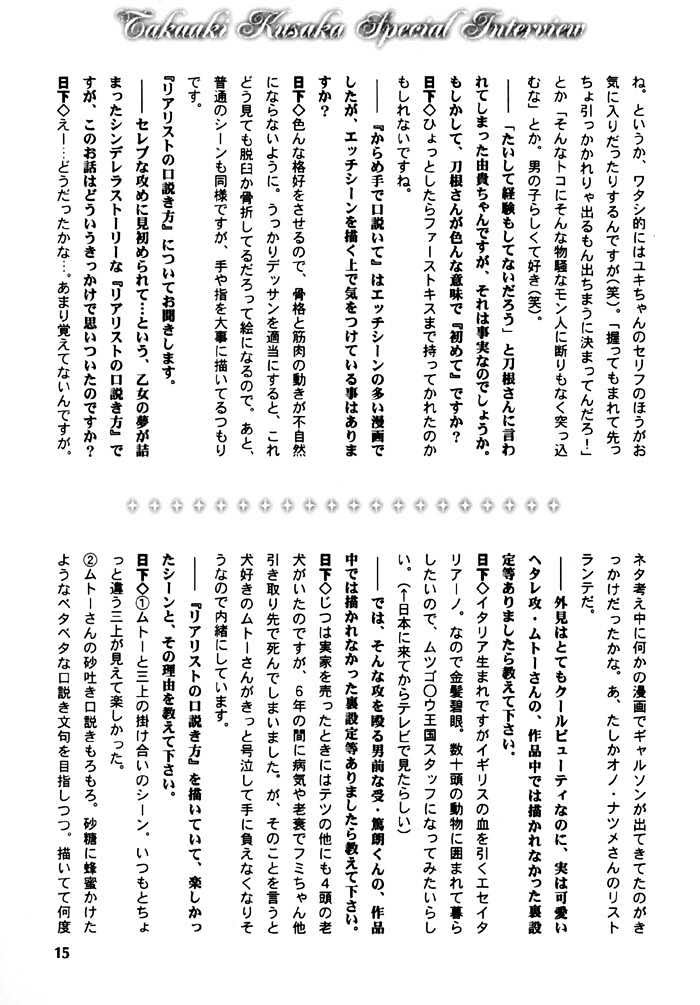 Takaaki Kusaka Special Interview
ね。というか、ワタシ的にはユキちゃんのセリフのほうがお
気に入りだったりするんですが(笑)。「握ってもまれて先っ
ちょ引っかかれりゃ出るもん出ちまうに決まってんだろ!」
とか「そんなトコにそんな物騒なモン人に断りもなく突っ込
むな」とか。男の子らしくて好き(笑)。
――「たいして経験もしてないだろう」と刀根さんに言わ
れてしまった由貴ちゃんですが、それは事実なのでしょうか。
もしかして、刀根さんが色んな意味で『初めて』ですか?
日下◇ひょっとしたらファーストキスまで持ってかれたのか
もしれないですね。
――『からめ手で口説いて』はエッチシーンの多い漫画で
したが、エッチシーンを描く上で気をつけている事はありま
すか?
日下◇色んな格好をさせるので、骨格と筋肉の動きが不自然
にならないように。うっかりデッサンを適当にすると、これ
どう見ても脱臼か骨折してるだろって絵になるので。あと、
普通のシーンも同様ですが、手や指を大事に描いてるつもり
です。
『リアリストの口説き方』についてお聞きします。
――セレブな攻めに見初められて…という、乙女の夢が詰
まったシンデレラストーリーな『リアリストの口説き方』で
すが、このお話はどういうきっかけで思いついたのですか?
日下◇えー…どうだったかな…。あまり覚えてないんですが。
ネタ考え中に何かの漫画でギャルソンが出てきてたのがき
っかけだったかな。あ、たしかオノ・ナツメさんのリスト
ランテだ。
――外見はとてもクールビューティなのに、実は可愛い
ヘタレ攻・ムトーさんの、作品中では描かれなかった裏設
定等ありましたら教えて下さい。
日下◇イタリア生まれですがイギリスの血を引くエセイタ
リアーノ。なので金髪碧眼。数十頭の動物に囲まれて暮ら
したいので、ムツゴ〇ウ王国スタッフになってみたいらし
い。(↑日本に来てからテレビで見たらしい)
――では、そんな攻を殴る男前な受・篤朗くんの、作品
中では描かれなかった裏設定等ありましたら教えて下さい。
日下◇じつは実家を売ったときにはテツの他にも4頭の老
犬がいたのですが、6年の間に病気や老衰でフミちゃん他
引き取り先で死んでしまいました。が、そのことを言うと
犬好きのムトーさんがきっと号泣して手に負えなくなりそ
うなので内緒にしています。
――『リアリストの口説き方』を描いていて、楽しかっ
たシーンと、その理由を教えて下さい。
日下◇①ムトーと三上の掛け合いのシーン。いつもとちょ
っと違う三上が見えて楽しかった。
②ムトーさんの砂吐き口説きもろもろ。砂糖に蜂蜜かけた
ようなベタベタな口説き文句を目指しつつ。描いてて何度
15